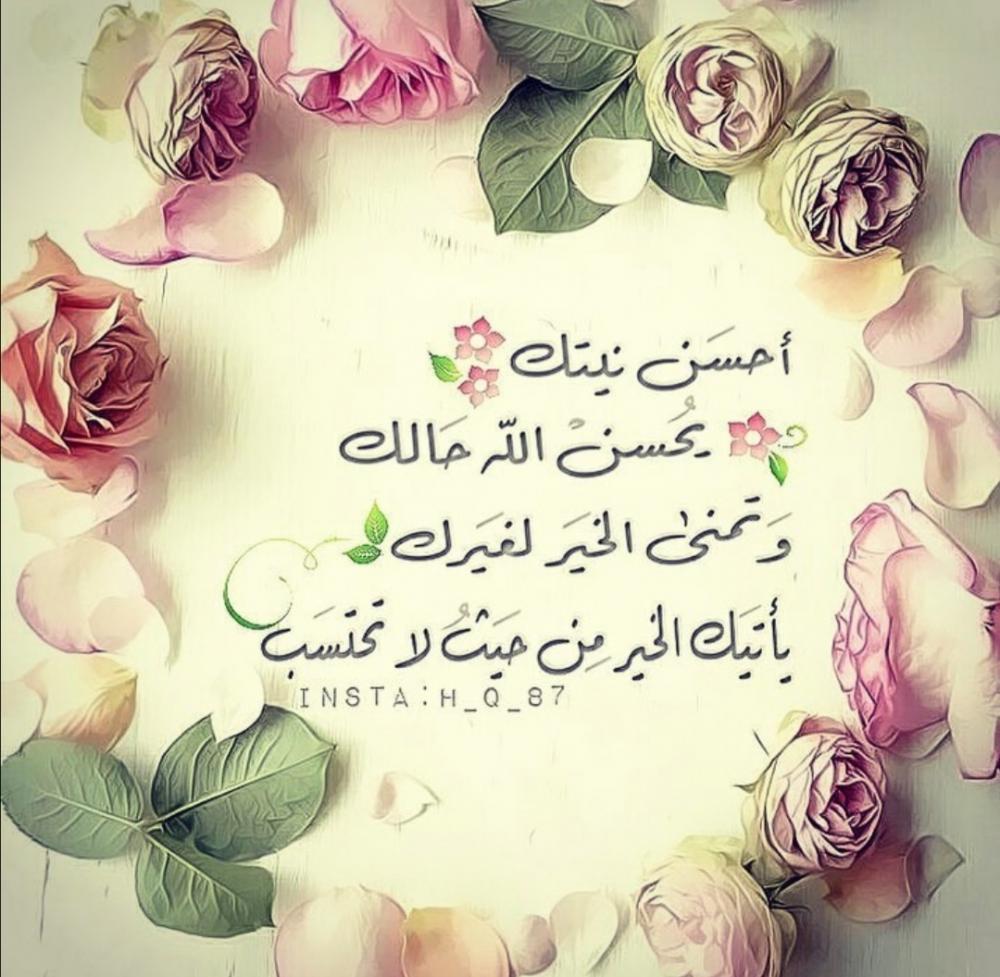 أحسَن نيتك
يحُسنْ اللّه حَالك
وَتمنىٰ الخيَر لغيَرك
يأتيَك الخير مِن حيَثُ لا تحتسَب
INSTA:H_Q_87